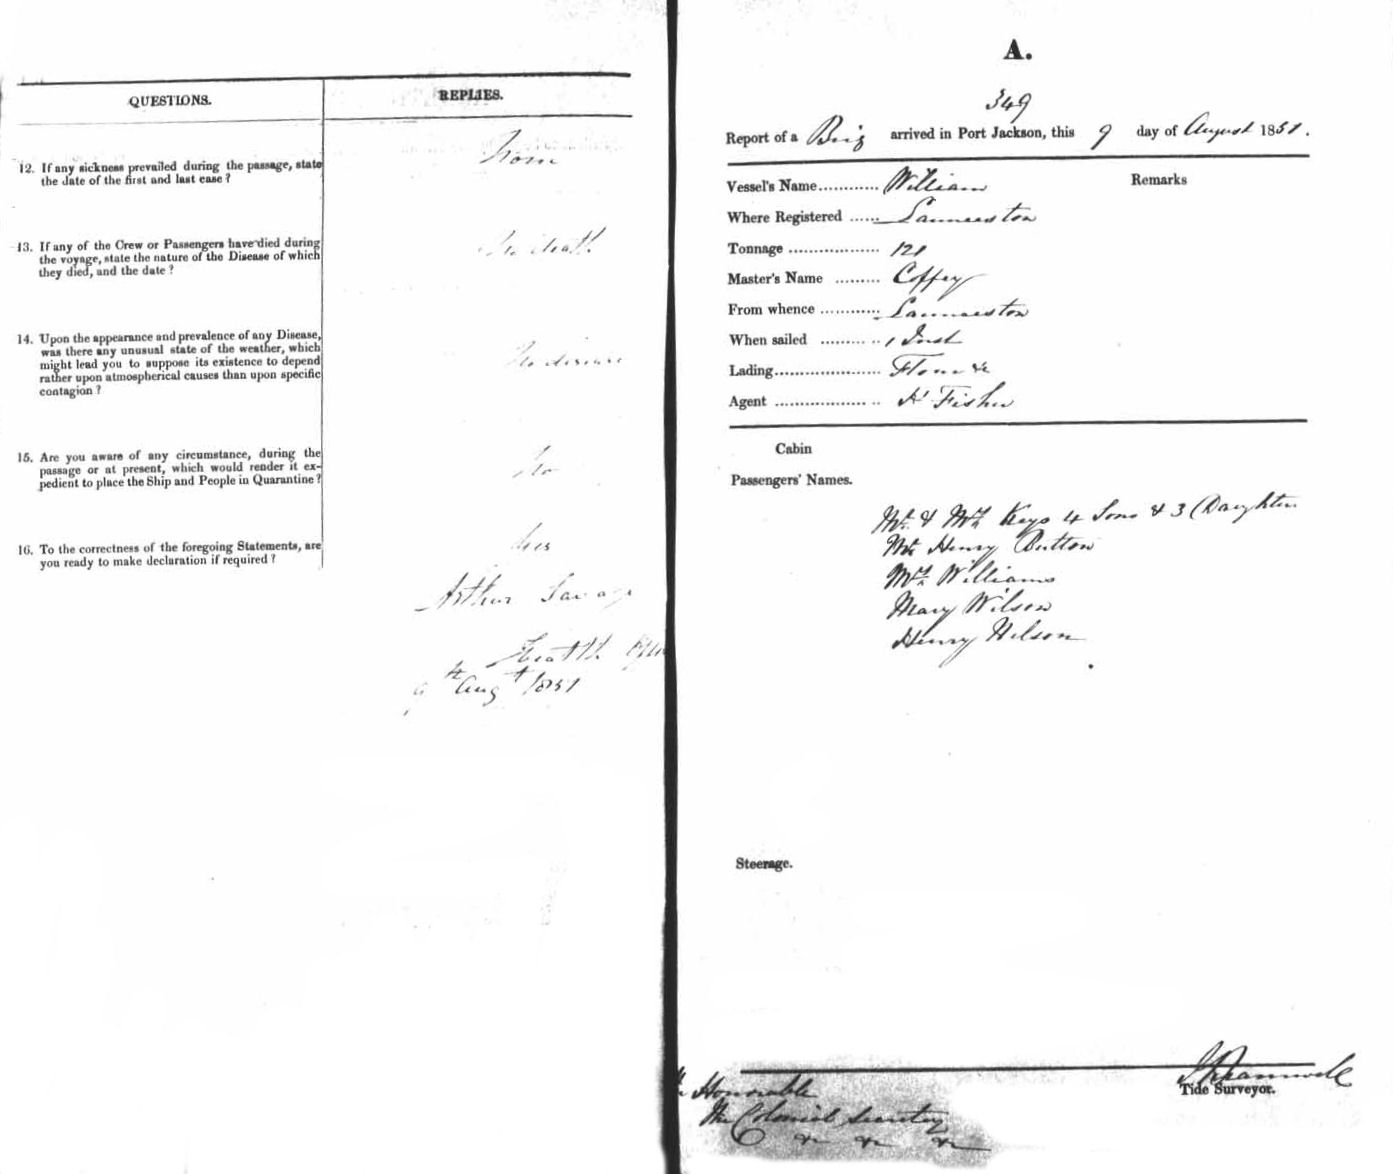 QUESTIONS.
REPLIES.
12. If any sickness prevailed during the passage, state
the date of the first and last case ?
13. If any of the Crew or Passengers have died during
the voyage, state the nature of the Disease of which
they died, and the date ?
No death
14. Upon the appearance and prevalence of any Disease,
was there any unusual state of the weather, which
might lead you to suppose its existence to depend
rather upon atmospherical causes than upon specific
contagion ?
No disease
15. Are you aware of any circumstance, during the
passage or at present, which would render it ex-
pedient to place the Ship and People in Quarantine ?
No
16. To the correctness of the foregoing Statements, are
you ready to make declaration if required ?
Yes
Arthur Savage
Health
9th Augt 1851
A.
349
Report of a Brig arrived in Port Jackson, this 9 day of August 1851.
Remarks
Vessel's Name............ William
Where Registered ...... Launceston
Tonnage .................. 121
Master's Name ......... Coffey
From whence ............ Launceston
When sailed ........... 1 Inst
Lading..................... Flour &c
Agent .................... Fisher
Cabin
Passengers' Names.
Mr & Mrs Keys 4 Sons & 3 Daughters
Mr Henry Button
Mrs Williams
Mary Wilson
Henry Nelson
Steerage.
Tide Surveyor.
Honorable
The Colonial Secretary
&c &c &c